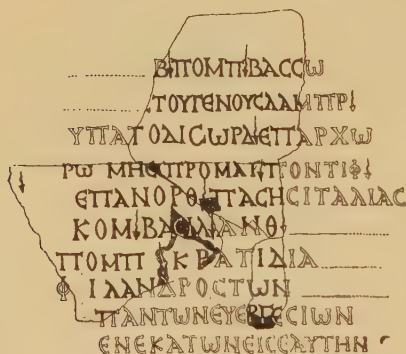 Β ΠΟΜΠ ΒΑϹϹω
ΤΟΥΓΕΝΟΥϹΛΑΜΠΡ
ΥΠΑΤΟΔΙϹωΡΔ ΕΠΑΡΧω
Ρω ΜΗϹΠΡΟΜΑΓ ΠΟΝΤΙΦ
ΕΠΑΝΟΡΘ ΠΑϹΗϹΙΤΑΛΙΑϹ
ΚΟΜ ΒΑϹΙΛΙΑΝΘ
ΠΟΜΠ ΚΡΑΤΙΔΙΑ
ΦΙΛΑΝΔΡΟϹΤωΝ
ΠΑΝΤωΝΕΥΕΡΓΕϹΙωΝ
ΕΝΕΚΑΤωΝΕΙϹΕΑΥΤΗΝ